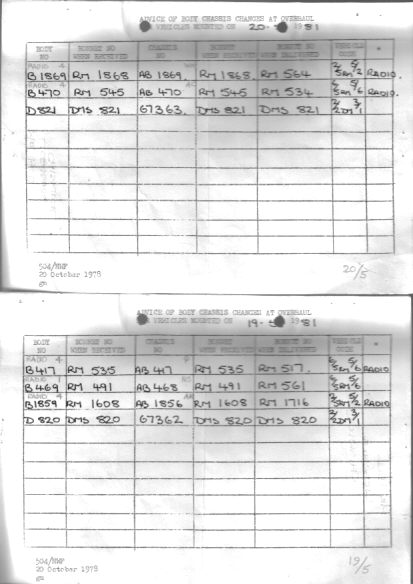 ADVICE OF BODY CHASSIS CHANGES AT OVERHAUL
VEHICLES MOUNTED ON 20-5 1981
BODY NO BONNET NO WHEN RECEIVED CHASSIS NO BONNET BONNET NO WHEN DELIVERED VEHICLE CODE *
RADIO 4
B1869 RM 1868 AB 1869. RM 1868. RM 564 RADIO.
RADIO 4
B470 RM 545 AB 470 RM 545 RM 534 RADIO.
D821 DMS 821 67363. DMS 821 DMS 821
504/MWP
20 October 1978
gn
20/5
ADVICE OF BODY CHASSIS CHANGES AT OVERHAUL
VEHICLES MOUNTED ON 19-5 1981
BODY NO BONNET NO WHEN RECEIVED CHASSIS NO BONNET WHEN MOUNTED BONNET NO WHEN DELIVERED VEHICLE CODE *
RADIO 4
B417 RM 535 AB 417 RM 535 RM 517. RADIO
B469 RM 491 AB 468 RM 491 RM 561
RADIO 4
B1859 RM 1608 AB 1856 RM 1608 RM 1716 RADIO
D 820 DMS 820 67362 DMS 820 DMS 820
504/MWP
20 October 1978
gn
19/5